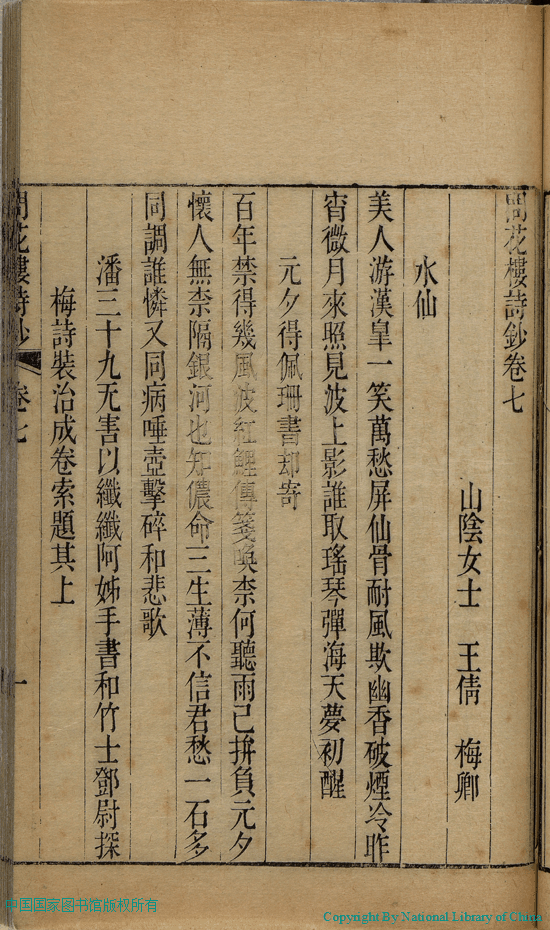 問花樓詩鈔卷七
山陰女士 王倩 梅卿
水仙
美人游漢皇一笑萬愁屏仙骨耐風欺幽香破煙冷昨
宵微月來照見波上影誰取瑤琴彈海天夢初醒
元夕得佩珊書却寄
百年禁得幾風波紅鯉傳箋喚柰何聽雨已拚負元夕
懷人無柰隔銀河也知儂命三生薄不信君愁一石多
同調誰憐又同病唾壺擊碎和悲歌
潘三十九无害以纖纖阿姊手書和竹士鄧尉探
梅詩裝治成卷索題其上
問花樓詩鈔 卷七 一
中国国家图书馆版权所有
Copyright By National Library of China